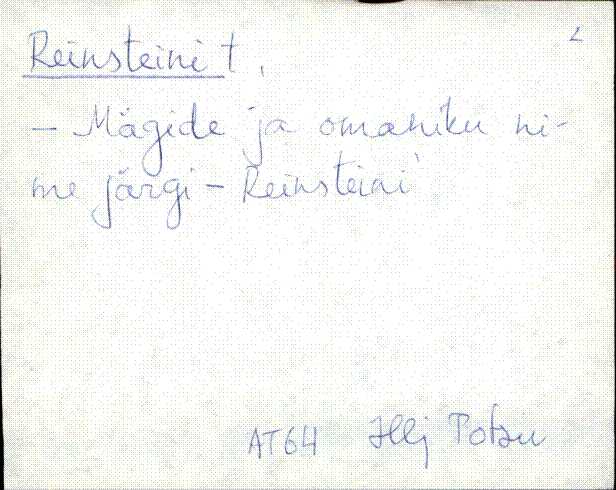 2
Reinsteini t.
– Mägide ja omaniku ni-
me järgi – Reinsteini
AT64